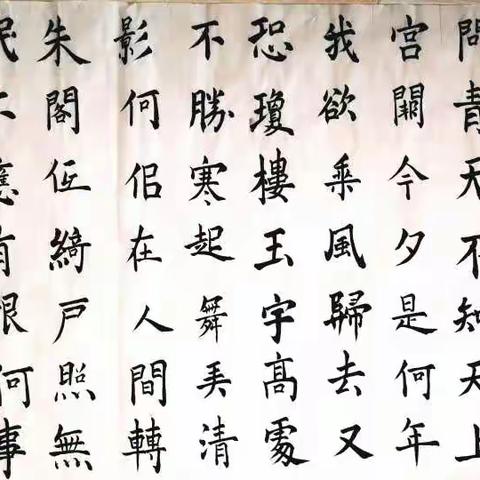 問青天不知天上
宮闕今夕是何年
我欲乘風歸去又
恐瓊樓玉宇高處
不勝寒起舞弄清
影何佀在人間轉
朱閣低綺戶照無
眠不應有恨何事